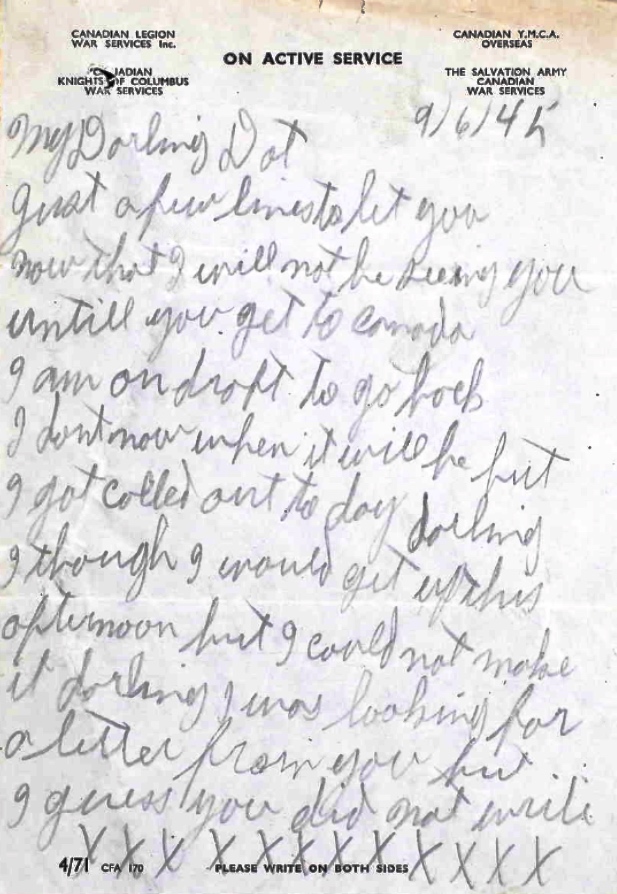 CANADIAN LEGION
WAR SERVICES Inc.
CANADIAN
KNIGHTS OF COLUMBUS
WAR SERVICES
ON ACTIVE SERVICE
CANADIAN Y.M.C.A.
OVERSEAS
THE SALVATION ARMY
CANADIAN
WAR SERVICES
9/6/45
My Darling Dot
Just a few lines to let you
now that I will not be seeing you
untill you get to canada
I am on draft to go back
I dont now when it will be but
I got called out to day darling
I though I would get up this
afternoon but I could not make
it darling I was looking for
a letter from you but
I guess you did not write
X X X X X X X X X X X X X
4/71 CFA 170 PLEASE WRITE ON BOTH SIDES